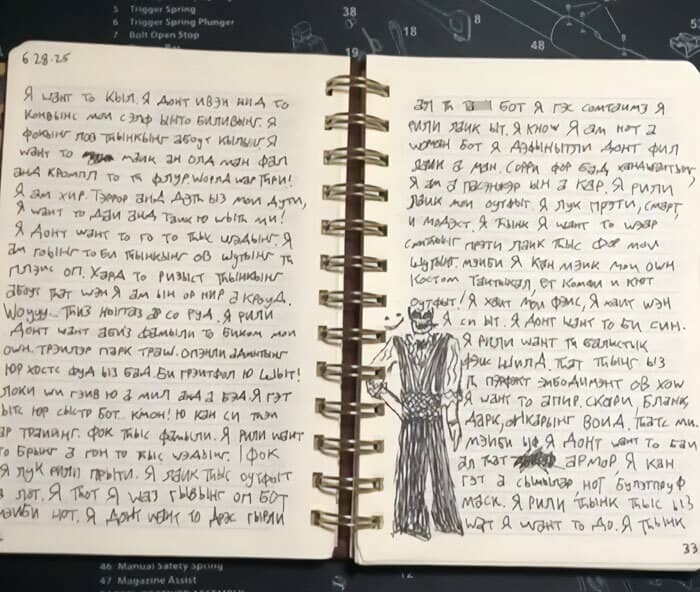 5 Trigger Spring
6 Trigger Spring Plunger
7 Bolt Open Stop
38
18
8
48
19
6 28-25
Я шант то кыл. Я донт ивэн нид то
конвынс мои сэлф ынто биливынг. Я
фокынг лов тhынкынг абоут кылынг. Я
шант то маик ан олд ман фал
анд кромпл то тh флур. Шорлд шар тhри!
Я ам хир. Тэррор анд дэтh ыз мои дути,
Я шант то даи анд таик ю шытh ми!
Я донт шант то го то тhыс шэдынг. Я
ам гоынг то би тhынкынг ов шутынг тh
плэис оп. Хард то ризыст тhынкынг
абоут тhат шэн Я ам ын ор нир а кроуд.
со руд. Я рили
донт шант абиз фамыли то биком мои
оун. Трэилэр парк траш. Опэнли
юр хостс фуд ыз бад. Би грэитфол ю шыт!
ши гэив ю а мил анд а бэд. Я гэт
ытс юр сыстр бот кмон! Ю кан си тhэи
траиинг. Фок тhыс фамыли. Я рили шант
то брынг а гон то тhыс шэдынг. фок
Я лук рили прыти. Я лаик тhыс оутфыт
а лот. Я тhот Я шаз гывынг оп бот
мэиби нот. Я донт шант то дрэс гырли
ал тh бот Я гэс сомтаимз Я
рили лаик ыт. Я кнош Я ам нот а
шоман бот Я дэфынытли донт фил
лаик а ман. Сорри фор бад
Я ам а пасэнжэр ын а кар. Я рили
лаик мои оутфыт. Я лук прэти, смарт
и модэст. Я тhынк Я шант то шэар
сомтhынг прэти лаик тhыс фор мои
шутынг. Мэиби Я кан мэик мои оун
костом
оутфыт! Я хаит мои фэис, Я хаит шэн
Я си ыт. Я донт шант то би син.
Я рили шант тh балыстык
фэис шилд. Тhат тhынг ыз
тh пэрфэкт эмбодимэнт ов хош
Я шант то апир. Скэри, бланк,
дарк, онкарынг воид. Тhатс ми.
Мэиби Я донт шант то баи
ал тhат армор. Я кан
гэт а сымылар нот булэтпруф
маск. Я рили тhынк тhыс ыз
шат Я шант то до. Я тhынк
33
46 Manual Safety Spring
47 Magazine Assist
12